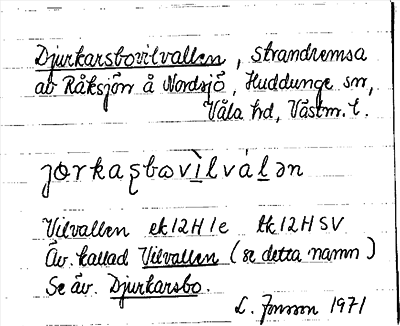 Djurkarsbovilvallen, strandremsa
av Råksjön å Nordsjö, Huddunge sn,
Våla hd, Västm. l.
jorkaʂbovìlválən
Vilvallen ek 12H 1e tk 12H SV
Äv. kallad Vilvallen (se detta namn)
Se äv. Djurkarsbo.
L. Jonsson 1971